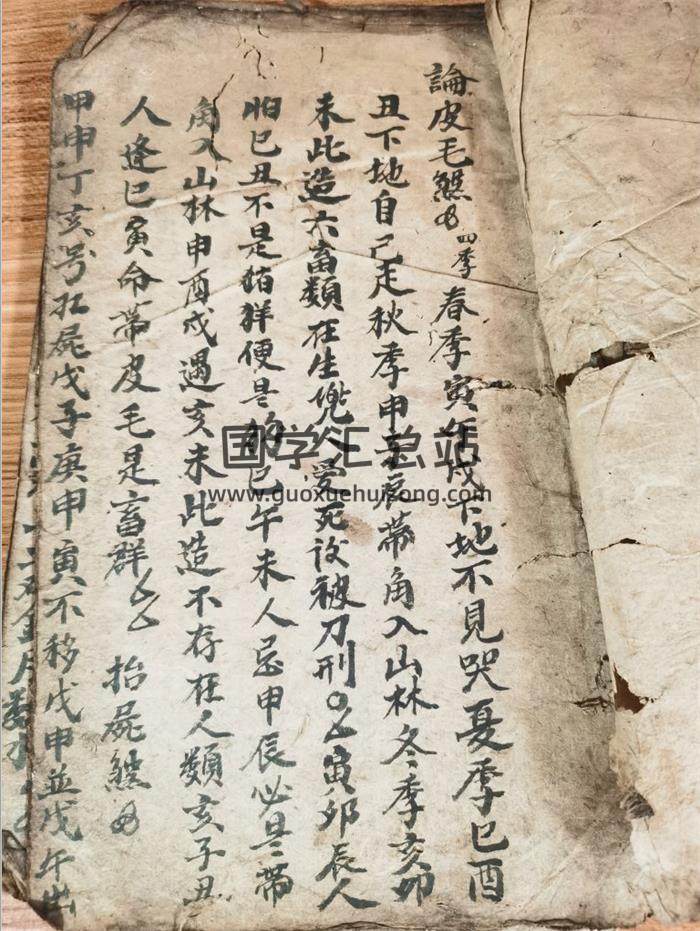 論皮毛煞 四季 春季寅午戌下地不見哭夏季巳酉
丑下地自己走秋季申子辰帶角入山林冬季亥卯
未此造六畜類在生兇人愛死後被刀刑 寅卯辰人
怕巳丑不是猪羊便是狗巳午未人忌申辰必是帶
角入山林申酉戌遇亥未此造不存在人類亥子丑
人逢巳寅命帶皮毛是畜群 抬屍煞
甲申丁亥号扛屍戊子庚申寅不移戊申並戊午出
国学汇总站
www.guoxuehuizong.com